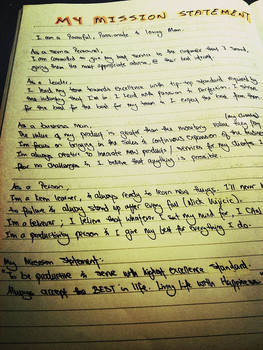 MY MISSION STATEMENT
I am a Powerful, Passionate & loving Man.
As a Service Personnel,
I am committed to give my best service to the customer that I served,
giving them the most appropriate advice @ their best interest.
As a Leader,
I lead my team towards excellence with tip-top standard required by
the industry that I'm in. I lead with passion to perfection. I strive
for the best for my team & I expect the best from them.
As a business man, (my clients)
The value of my product is greater than the monetary value they pay
I'm focus on bringing in the sales & continuous expansion of the
I'm always creative to innovate best products / services for my clients. I
fear no challenges & I believe that anything is possible.
As a Person,
I'm a keen learner, & always ready to learn new things. I'll never
to failure & always stand up after every fall (Nick Vujicic).
I'm a believer, I believe that whatever I set my mind for, I CAN
I'm a productivity person & I give my best for everything I do.
My Mission Statement:
To be productive & serve with highest excellence standard.
Always accept the BEST in life. Living Life with Happiness